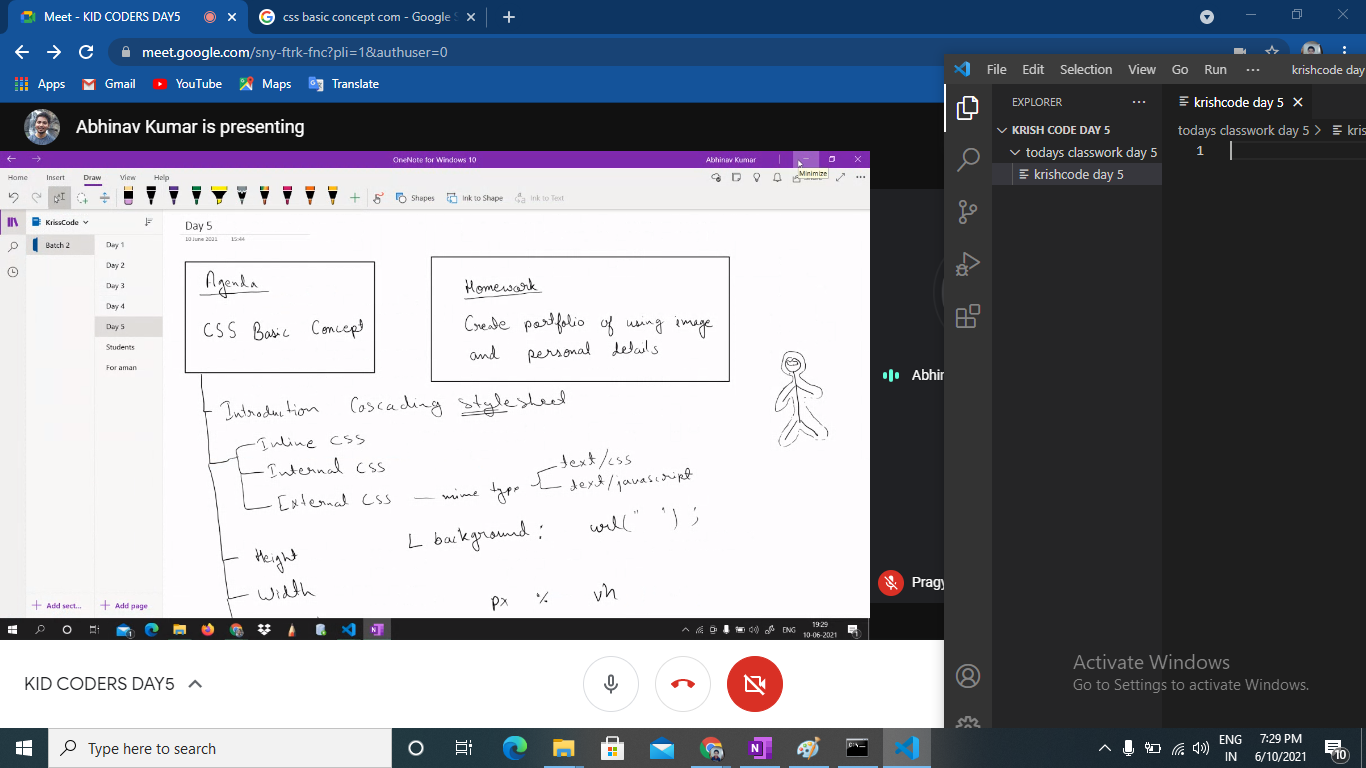 Meet - KID CODERS DAY5
css basic concept com - Google S
meet.google.com/sny-ftrk-fnc?pli=1&authuser=0
Apps Gmail YouTube Maps Translate
Abhinav Kumar is presenting
OneNote for Windows 10 Abhinav Kumar
Minimize
Home Insert Draw View Help
Shapes Ink to Shape Ink to Text
KrissCode
Batch 2
Day 1
Day 2
Day 3
Day 4
Day 5
Students
For aman
Add sect... Add page
Day 5
10 June 2021 15:44
Agenda
CSS Basic Concept
Homework
Create portfolio of using image
and personal details
Introduction Cascading Stylesheet
Inline CSS
Internal CSS
External CSS — mime type
text/css
text/javascript
background : url(" ") ;
Height
Width
px % vh
ENG 19:29
10-06-2021
Abhin
Pragy
KID CODERS DAY5
File Edit Selection View Go Run ··· krishcode day
EXPLORER ···
KRISH CODE DAY 5
todays classwork day 5
krishcode day 5
krishcode day 5
todays classwork day 5 > kris
1
Activate Windows
Go to Settings to activate Windows.
Type here to search
ENG
IN
7:29 PM
6/10/2021
10